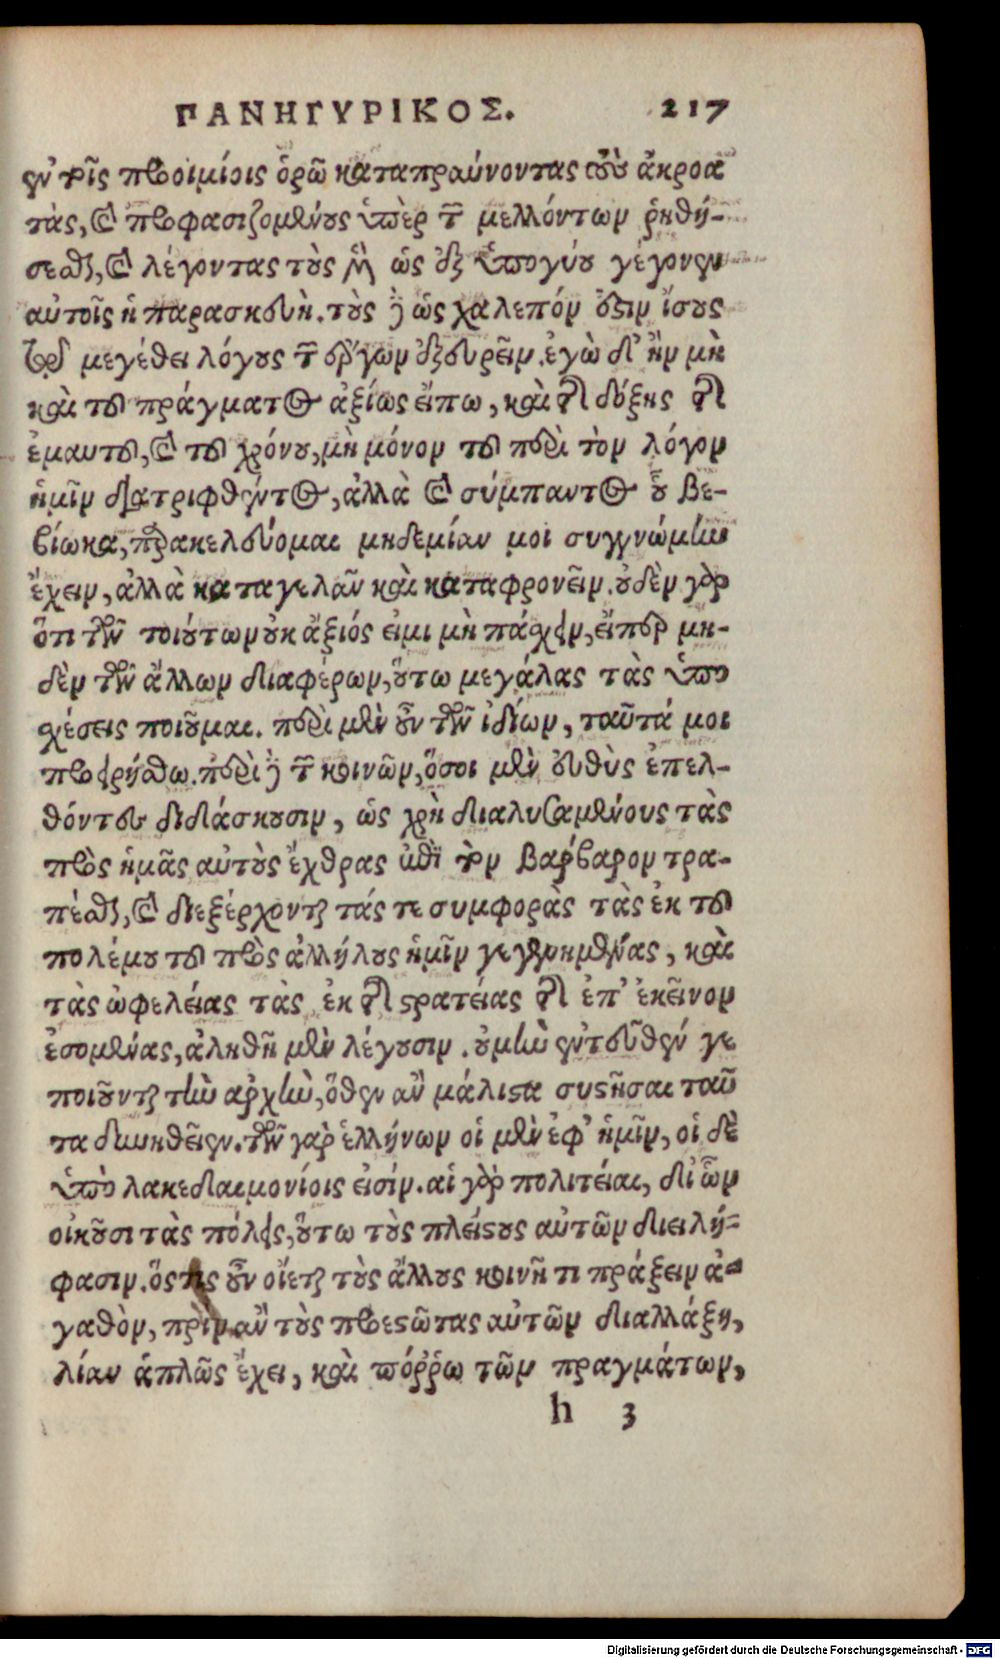 ΠΑΝΗΓΥΡΙΚΟΣ. 217
ἐν τοῖς προοιμίοις ὁρῶ καταπραΰνοντας τοὺς ἀκροα
τὰς, καὶ προφασιζομένους ὑπὲρ τῶν μελλόντων ῥηθή-
σεσθαι, καὶ λέγοντας τοὺς μὲν ὡς ἐξ ὑπογύου γέγονεν
αὐτοῖς ἡ παρασκευὴ. τοὺς δὲ ὡς χαλεπόν ἐστιν ἴσους
τῷ μεγέθει λόγους τῶν ἔργων ἐξευρεῖν. ἐγὼ δ' ἢν μὴ
καὶ τοῦ πράγματος ἀξίως εἴπω, καὶ τῆς δόξης τῆς
ἐμαυτοῦ, καὶ τοῦ χρόνου, μὴ μόνον τοῦ περὶ τὸν λόγον
ἡμῖν διατριφθέντος, ἀλλὰ καὶ σύμπαντος οὗ βε-
βίωκα, παρακελεύομαι μηδεμίαν μοι συγγνώμην
ἔχειν, ἀλλὰ καταγελᾶν καὶ καταφρονεῖν. οὐδὲν γὰρ
ὅτι τῶν τοιούτων οὐκ ἄξιός εἰμι μὴ πάσχειν, εἴπερ μη-
δὲν τῶν ἄλλων διαφέρων, οὕτω μεγάλας τὰς ὑπο
σχέσεις ποιοῦμαι. περὶ μὲν οὖν τῶν ἰδίων, ταῦτά μοι
προειρήσθω. περὶ δὲ τῶν κοινῶν, ὅσοι μὲν εὐθὺς ἐπελ-
θόντες διδάσκουσιν, ὡς χρὴ διαλυσαμένους τὰς
πρὸς ἡμᾶς αὐτοὺς ἔχθρας ἐπὶ τὸν βάρβαρον τρα-
πέσθαι, καὶ διεξέρχονται τάς τε συμφορὰς τὰς ἐκ τοῦ
πολέμου τοῦ πρὸς ἀλλήλους ἡμῖν γεγενημένας, καὶ
τὰς ὠφελείας τὰς ἐκ τῆς στρατείας τῆς ἐπ' ἐκεῖνον
ἐσομένας, ἀληθῆ μὲν λέγουσιν. οὐ μὴν ἐντεῦθέν γε
ποιοῦνται τὴν ἀρχὴν, ὅθεν ἂν μάλιστα συστῆσαι ταῦ
τα δυνηθεῖεν. τῶν γὰρ ἑλλήνων οἱ μὲν ἐφ' ἡμῖν, οἱ δὲ
ὑπὸ λακεδαιμονίοις εἰσίν. αἱ γὰρ πολιτείαι, δι' ὧν
οἰκοῦσι τὰς πόλεις, οὕτω τοὺς πλείστους αὐτῶν διειλή-
φασιν. ὅστις οὖν οἴεται τοὺς ἄλλους κοινῇ τι πράξειν ἀ-
γαθὸν, πρὶν ἂν τοὺς προεστῶτας αὐτῶν διαλλάξῃ,
λίαν ἁπλῶς ἔχει, καὶ πόῤῥω τῶν πραγμάτων,
h 3
Digitalisierung gefördert durch die Deutsche Forschungsgemeinschaft - DFG